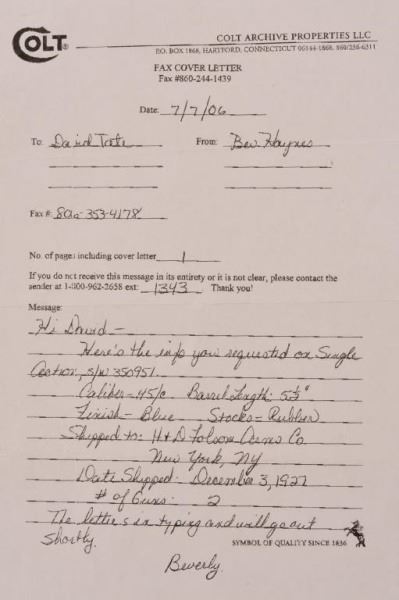 COLT
COLT ARCHIVE PROPERTIES LLC
P.O. BOX 1868, HARTFORD, CONNECTICUT 06144-1868. 860/236-6311
FAX COVER LETTER
Fax #860-244-1439
Date: 7/7/06
To: David From: Bev Haynes
Fax #: 802-353-4178
No. of pages including cover letter 1
If you do not receive this message in its entirety or it is not clear, please contact the
sender at 1-800-962-2658 ext: 1343 Thank you!
Message:
Hi David -
Here's the info you requested on Single
Action, s/n 350951.
Caliber - 45/c Barrel Length: 5½"
Finish - Blue Stocks = Rubber
Shipped to: H+D Folsom Arms Co
New York, NY
Date Shipped: December 3, 1927
# of Guns: 2
The letter's in typing and will go out
Shortly.
SYMBOL OF QUALITY SINCE 1836
Beverly